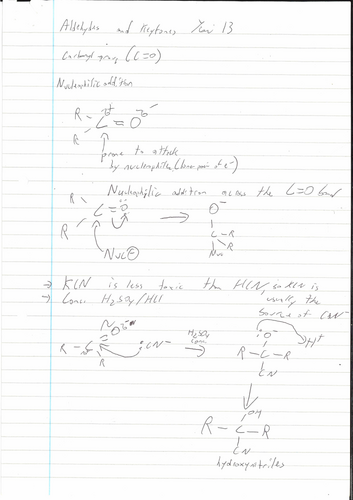 Aldehydes and Ketones 13
Carbonyl group (C=O)
Nucleophilic addition
R
δ+ δ-
C = O
R
prone to attack
by nucleophiles (lone pair of e⁻)
Nucleophilic addition across the C=O bond
R
C = O
R
Nuc⊖
O⁻
C - R
R
Nuc
→ KCN is less toxic than HCN, so KCN is
usually the
source of CN⁻
→ Conc H₂SO₄/HCl
R - C
R
:CN⁻
H₂SO₄
conc
:O⁻
H⁺
R - C - R
CN
OH
R - C - R
CN
hydroxynitriles